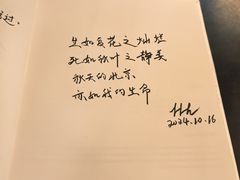 过.
生如夏花之灿烂
死如秋叶之静美
秋天的北京.
亦如我的生命
2024.10.16